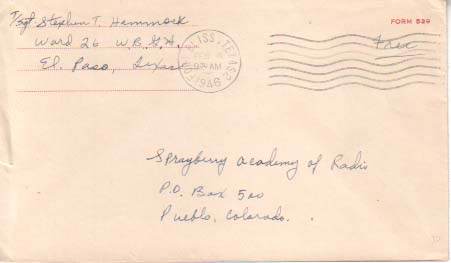 T/Sgt Stephen T. Hammock
Ward 26 W.B.G.H.
El Paso, Texas
FORM 539
Free
FT. BLISS, TEXAS
AM
1946
Sprayberry Academy of Radio
P.O. Box 500
Pueblo, Colorado.